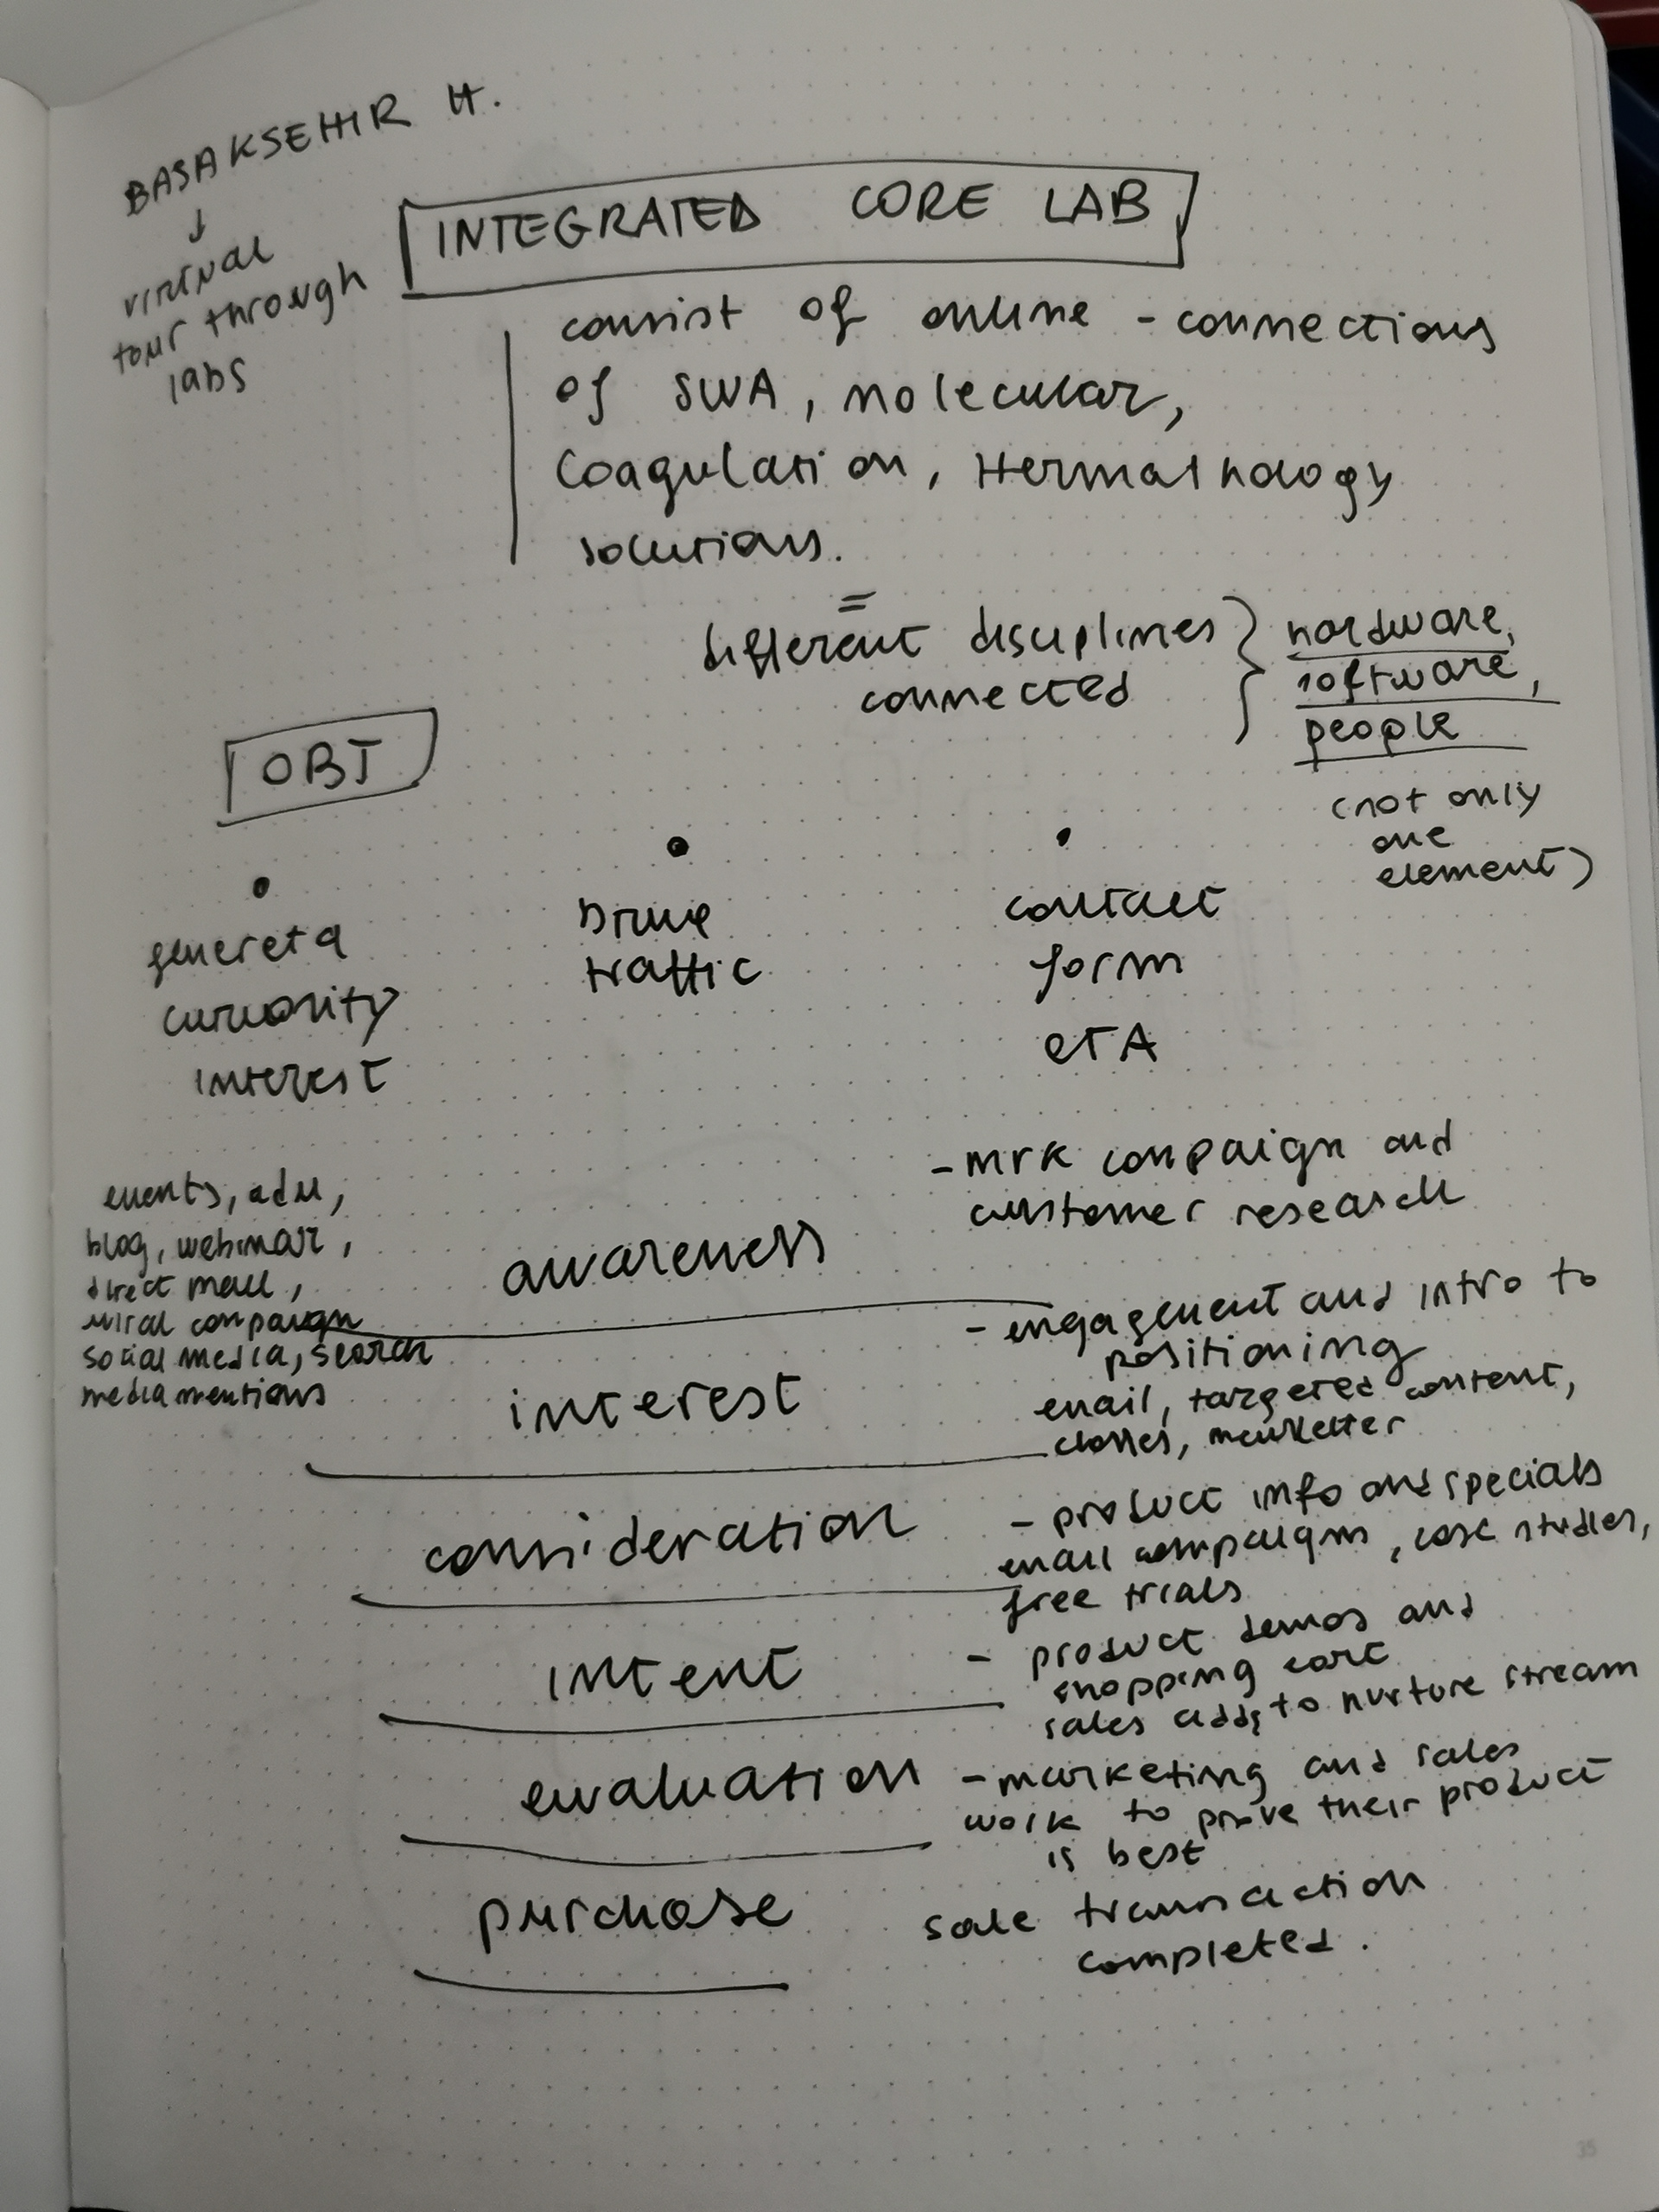 BASAKSEHIR H.
↓
virtual
tour through
labs
INTEGRATED CORE LAB
consist of online - connections
of SWA, molecular,
Coagulation, Hermathology
solutions.
=
different disciplines
connected
hardware,
software,
people
(not only
one
element)
OBJ
• genereta
curiosity
interest
• Drive
traffic
• contact
form
CTA
events, adv,
blog, webinar,
direct mail,
viral campaign
social media, search
media mentions
awareness
- mrk campaign and
customer research
interest
- engagement and intro to
positioning
email, targered content,
classes, newsletter
consideration
- product info and specials
email campaigns, case studies,
free trials
intent
- product demos and
shopping cart
sales adds to nurture stream
evaluation
- marketing and sales
work to prove their product
is best
purchase
sale transaction
completed.
35